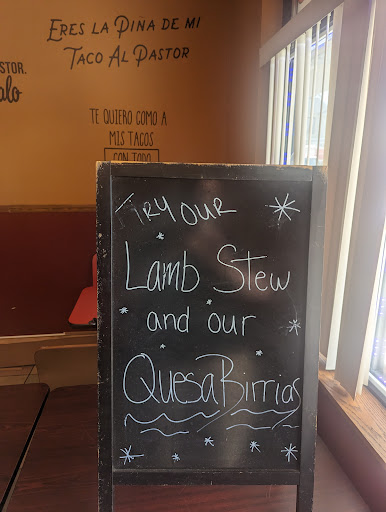 ERES LA PIÑA DE MI
TACO AL PASTOR
STOR.
alo
TE QUIERO COMO A
MIS TACOS
CON TODO
TRY OUR
Lamb Stew
and our
QuesaBirrias